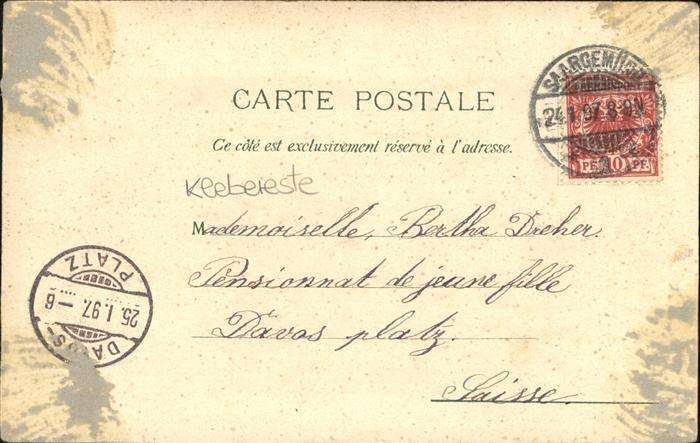 CARTE POSTALE
Ce côté est exclusivement réservé à l'adresse.
SAARGEMÜND
24.1.97.8-9N
PF 10 PF
Klebereste
Mademoiselle, Bertha Dreher.
Pensionnat de jeune fille
Davos platz.
Suisse.
DAVOS-
PLATZ
25.I.97.-6